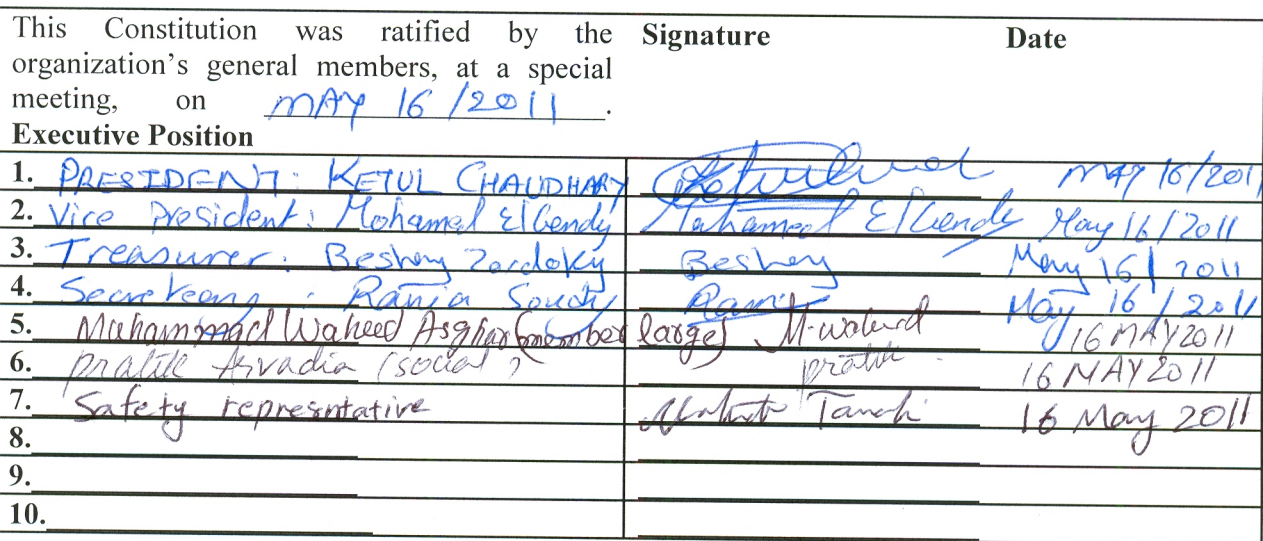 This Constitution was ratified by the Signature Date
organization's general members, at a special
meeting, on MAY 16/2011.
Executive Position
1. PRESIDENT: KETUL CHAUDHARY MAY 16/2011
2. Vice President: Mohamed ElGendy Mohamed ElGendy May 16/2011
3. Treasurer: Beshoy Zardoky Beshoy May 16/2011
4. Secretary: Rania Soudy Rania May 16/2011
5. Muhammad Waheed Asghar (member large) M.waheed 16 MAY 2011
6. pratik Arvadia (social) pratik 16 MAY 2011
7. Safety represntative 16 May 2011
8.
9.
10.